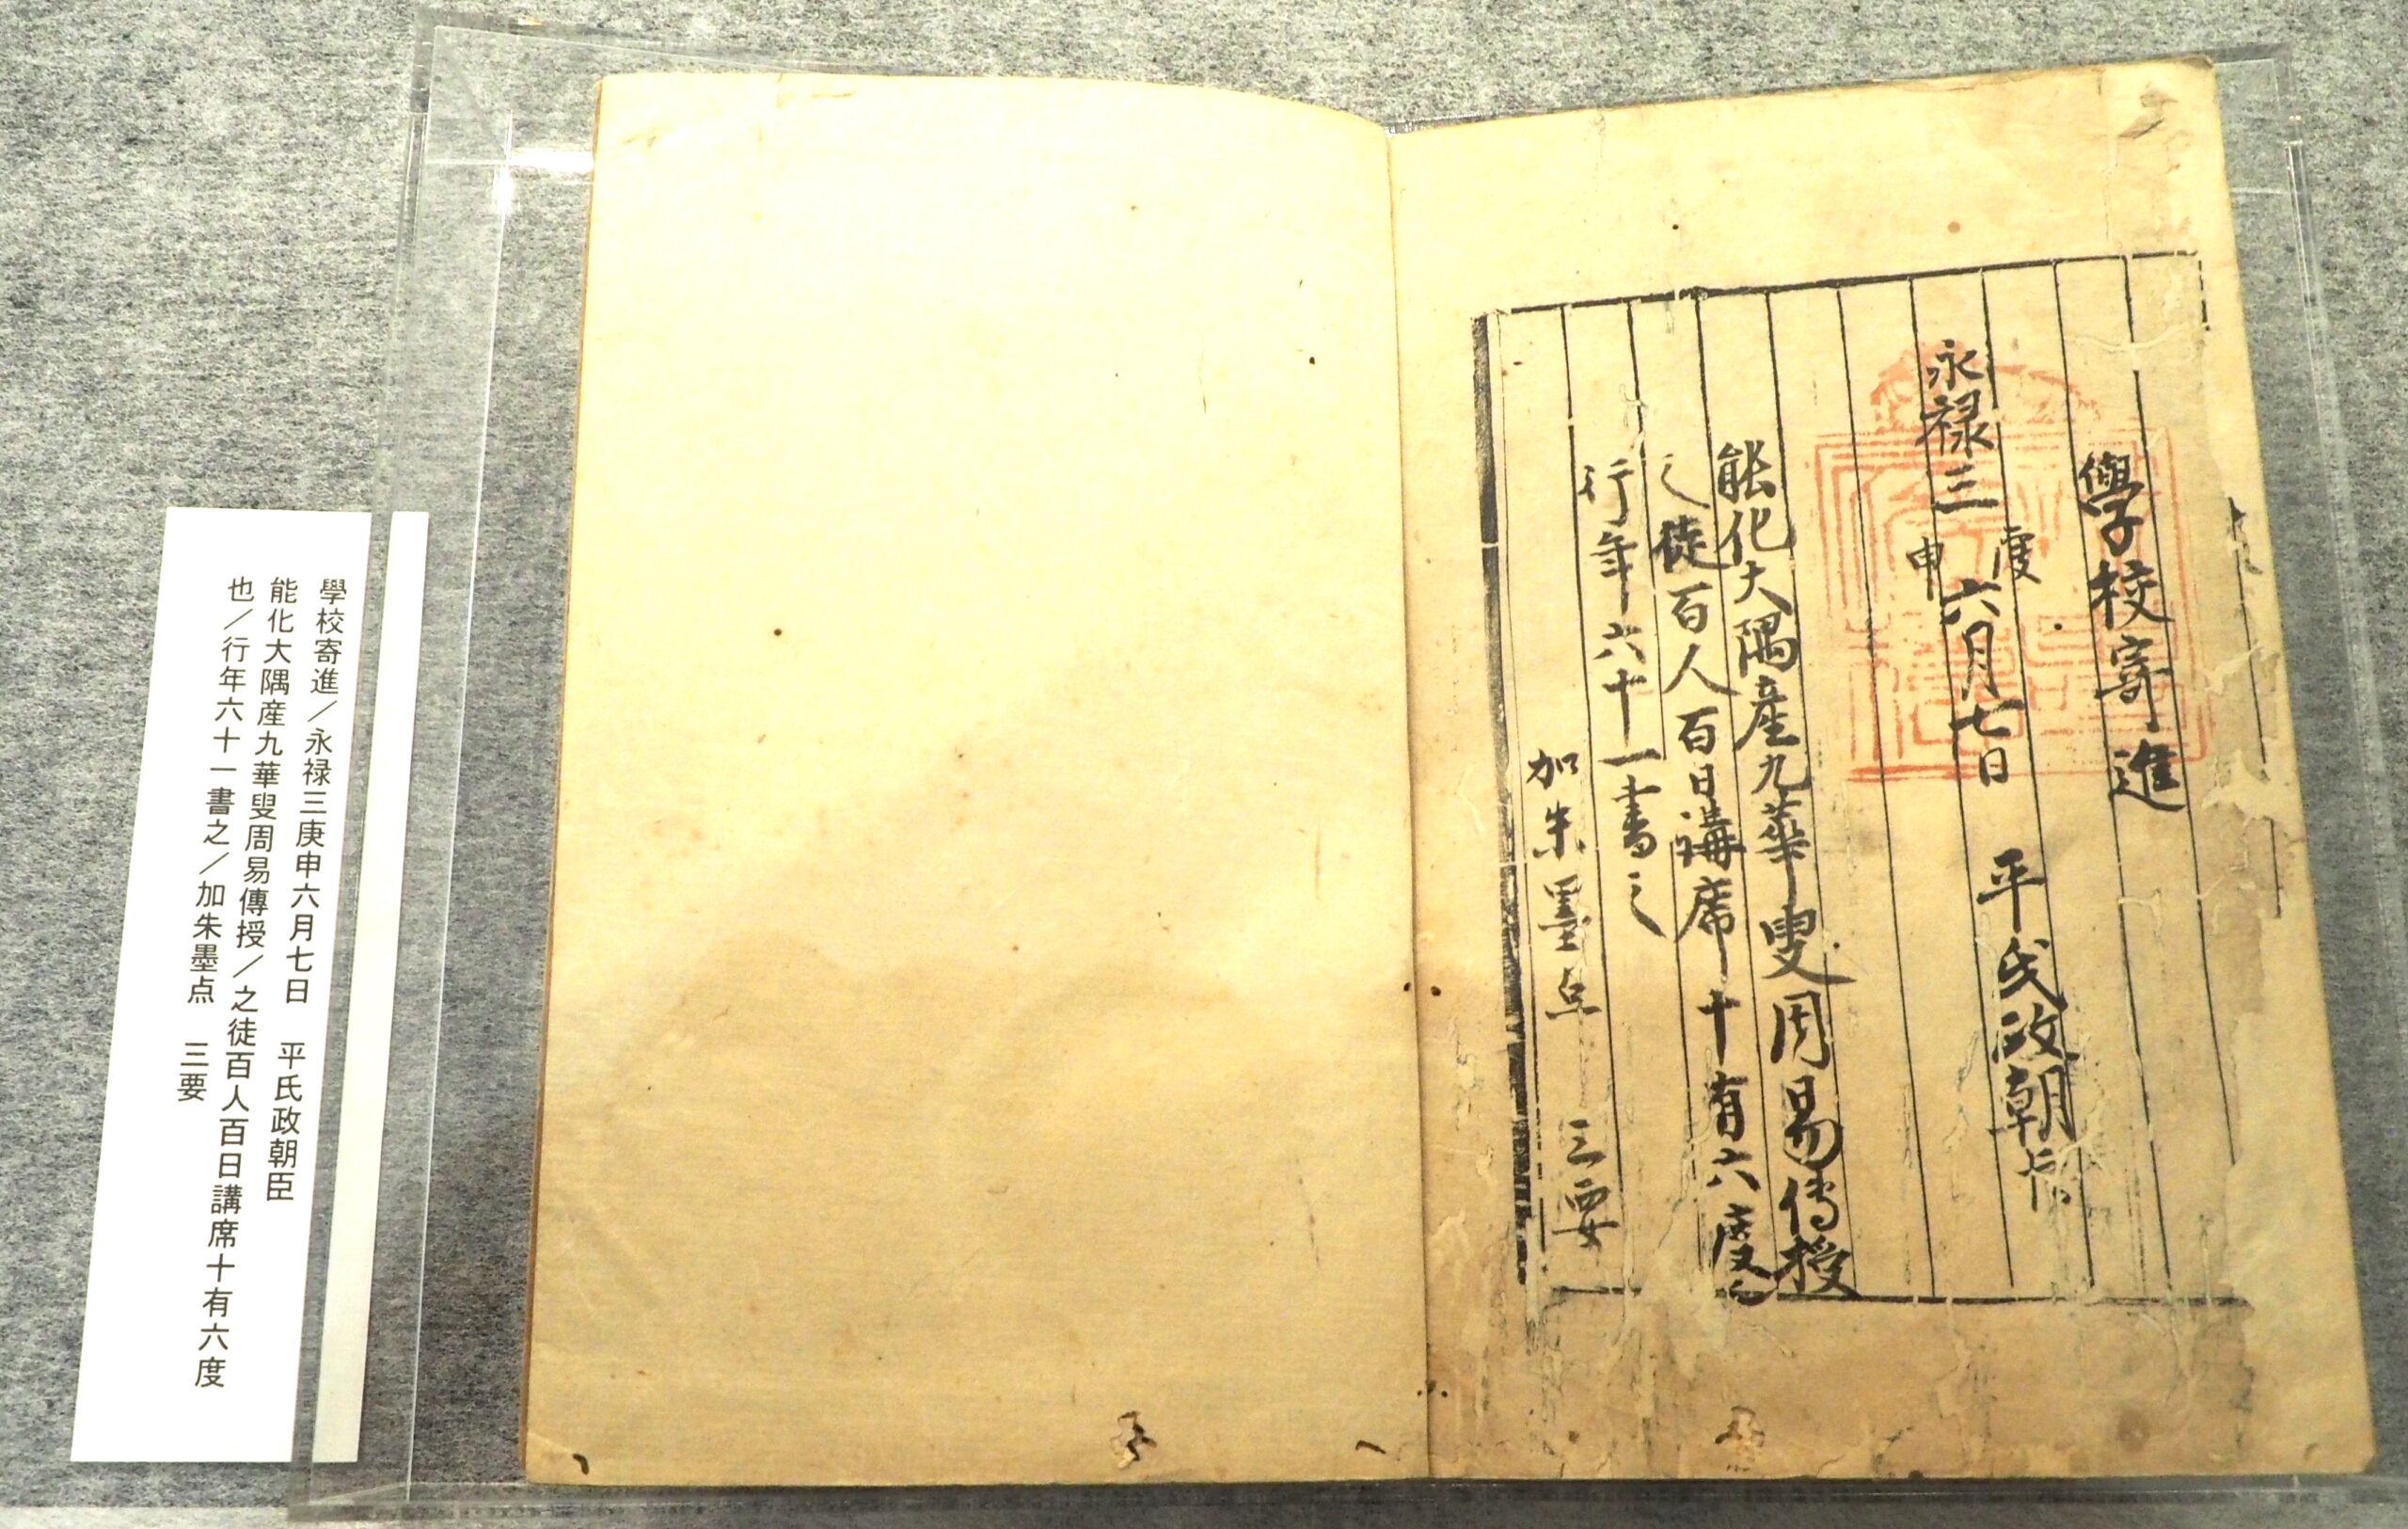 學校寄進
永禄三庚申六月七日　平氏政朝臣
能化大隅産九華叟周易傳授
之徒百人百日講席十有六度也
行年六十一書之
加朱墨点　三要
學校寄進／永禄三庚申六月七日　平氏政朝臣
能化大隅産九華叟周易傳授／之徒百人百日講席十有六度
也／行年六十一書之／加朱墨点　三要